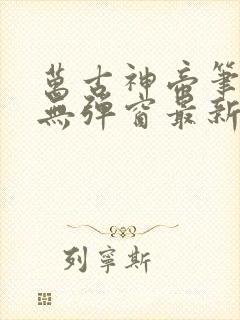 萬古神帝筆
無彈窗最新
列寧斯